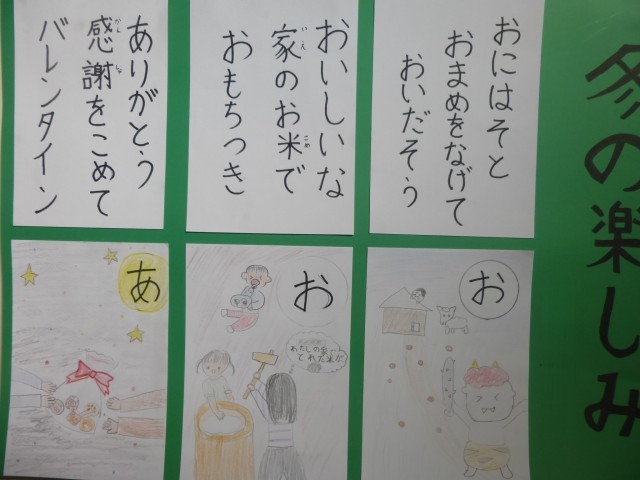 冬の楽しみ
おにはそと
おまめをなげて
おいだそう
お
おいしいな
家のお米で
いえ
こめ
おもちつき
お
わたしの家で
とれた米だ
ありがとう
感謝をこめて
かんしゃ
バレンタイン
あ